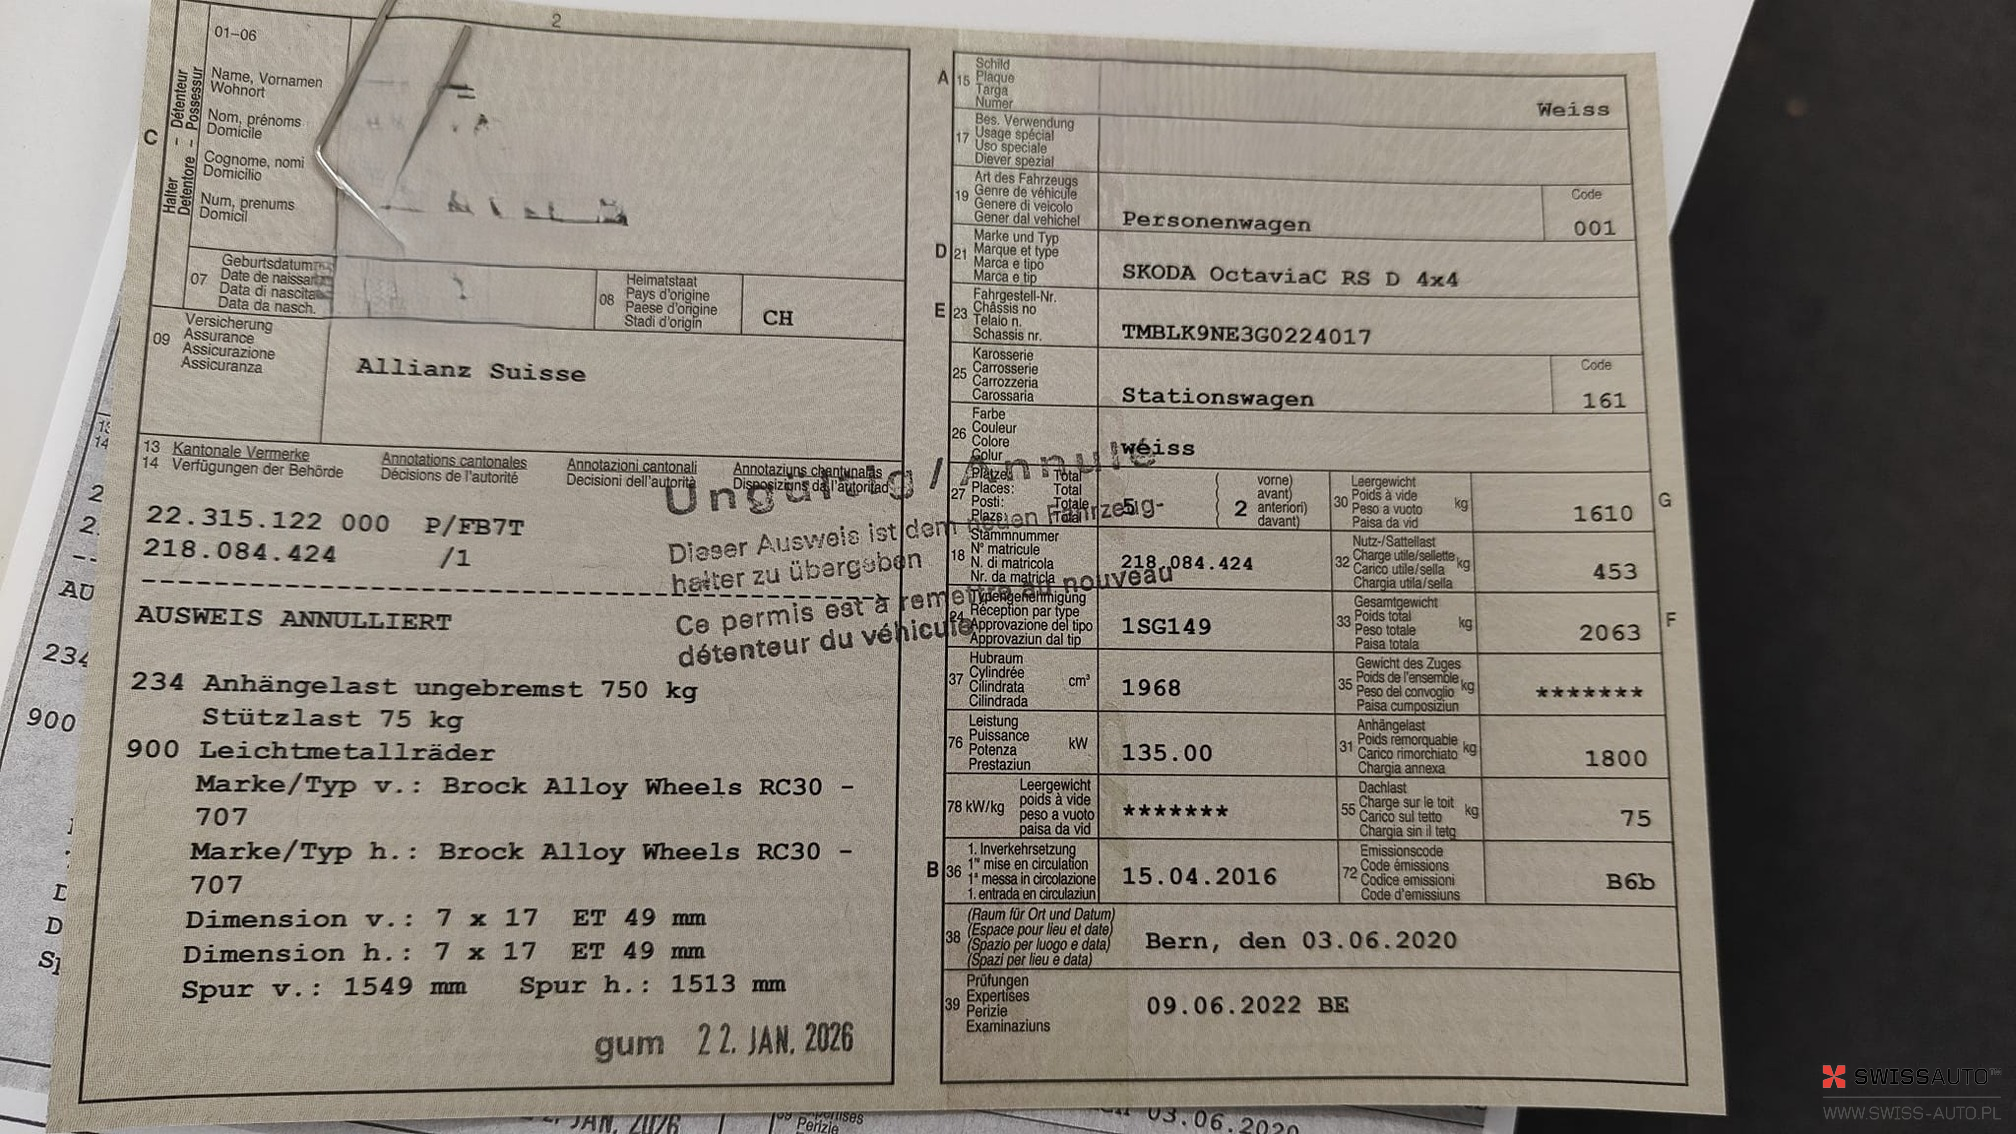 2
01-06
C
Halter - Détenteur
Detentore - Possessur
Name, Vornamen
Wohnort
Nom, prénoms
Domicile
Cognome, nomi
Domicilio
Num, prenums
Domicil
07
Geburtsdatum
Date de naissan
Data di nascita
Data da nasch.
08
Heimatstaat
Pays d'origine
Paese d'origine
Stadi d'origin
CH
09
Versicherung
Assurance
Assicurazione
Assicuranza
Allianz Suisse
13 Kantonale Vermerke
14 Verfügungen der Behörde
Annotations cantonales
Décisions de l'autorité
Annotazioni cantonali
Decisioni dell'autorità
Annotaziuns chantunalas
Disposiziuns da l'autoritad
Ungültig / Annulé
Dieser Ausweis ist dem neuen Fahrzeug-
halter zu übergeben
Ce permis est à remettre au nouveau
détenteur du véhicule
22.315.122 000 P/FB7T
218.084.424 /1
AUSWEIS ANNULLIERT
234 Anhängelast ungebremst 750 kg
Stützlast 75 kg
900 Leichtmetallräder
Marke/Typ v.: Brock Alloy Wheels RC30 -
707
Marke/Typ h.: Brock Alloy Wheels RC30 -
707
Dimension v.: 7 x 17 ET 49 mm
Dimension h.: 7 x 17 ET 49 mm
Spur v.: 1549 mm Spur h.: 1513 mm
gum 22. JAN. 2026
A
15
Schild
Plaque
Targa
Numer
Weiss
17
Bes. Verwendung
Usage spécial
Uso speciale
Diever spezial
19
Art des Fahrzeugs
Genre de véhicule
Genere di veicolo
Gener dal vehichel
Personenwagen
Code
001
D
21
Marke und Typ
Marque et type
Marca e tipo
Marca e tip
SKODA OctaviaC RS D 4x4
E
23
Fahrgestell-Nr.
Châssis no
Telaio n.
Schassis nr.
TMBLK9NE3G0224017
25
Karosserie
Carrosserie
Carrozzeria
Carossaria
Stationswagen
Code
161
26
Farbe
Couleur
Colore
Colur
weiss
27
Plätze: Total
Places: Total
Posti: Totale
Plazs: Total
5
2
vorne)
avant)
anteriori)
davant)
30
Leergewicht
Poids à vide
Peso a vuoto
Paisa da vid
kg
1610
G
18
Stammnummer
N° matricule
N. di matricola
Nr. da matricla
218.084.424
32
Nutz-/Sattellast
Charge utile/sellette
Carico utile/sella
Chargia utila/sella
kg
453
24
Typengenehmigung
Réception par type
Approvazione del tipo
Approvaziun dal tip
1SG149
33
Gesamtgewicht
Poids total
Peso totale
Paisa totala
kg
2063
F
37
Hubraum
Cylindrée
Cilindrata
Cilindrada
cm³
1968
35
Gewicht des Zuges
Poids de l'ensemble
Peso del convoglio
Paisa cumposiziun
kg
*******
76
Leistung
Puissance
Potenza
Prestaziun
kW
135.00
31
Anhängelast
Poids remorquable
Carico rimorchiato
Chargia annexa
kg
1800
78 kW/kg
Leergewicht
poids à vide
peso a vuoto
paisa da vid
*******
55
Dachlast
Charge sur le toit
Carico sul tetto
Chargia sin il tetg
kg
75
B
36
1. Inverkehrsetzung
1re mise en circulation
1a messa in circolazione
1. entrada en circulaziun
15.04.2016
72
Emissionscode
Code émissions
Codice emissioni
Code d'emissiuns
B6b
38
(Raum für Ort und Datum)
(Espace pour lieu et date)
(Spazio per luogo e data)
(Spazi per lieu e data)
Bern, den 03.06.2020
39
Prüfungen
Expertises
Perizie
Examinaziuns
09.06.2022 BE
14
2
2.
AU
234
900
D
D
JAN. 2026
Perizie
03.06.2020
SWISSAUTO™
WWW.SWISS-AUTO.PL